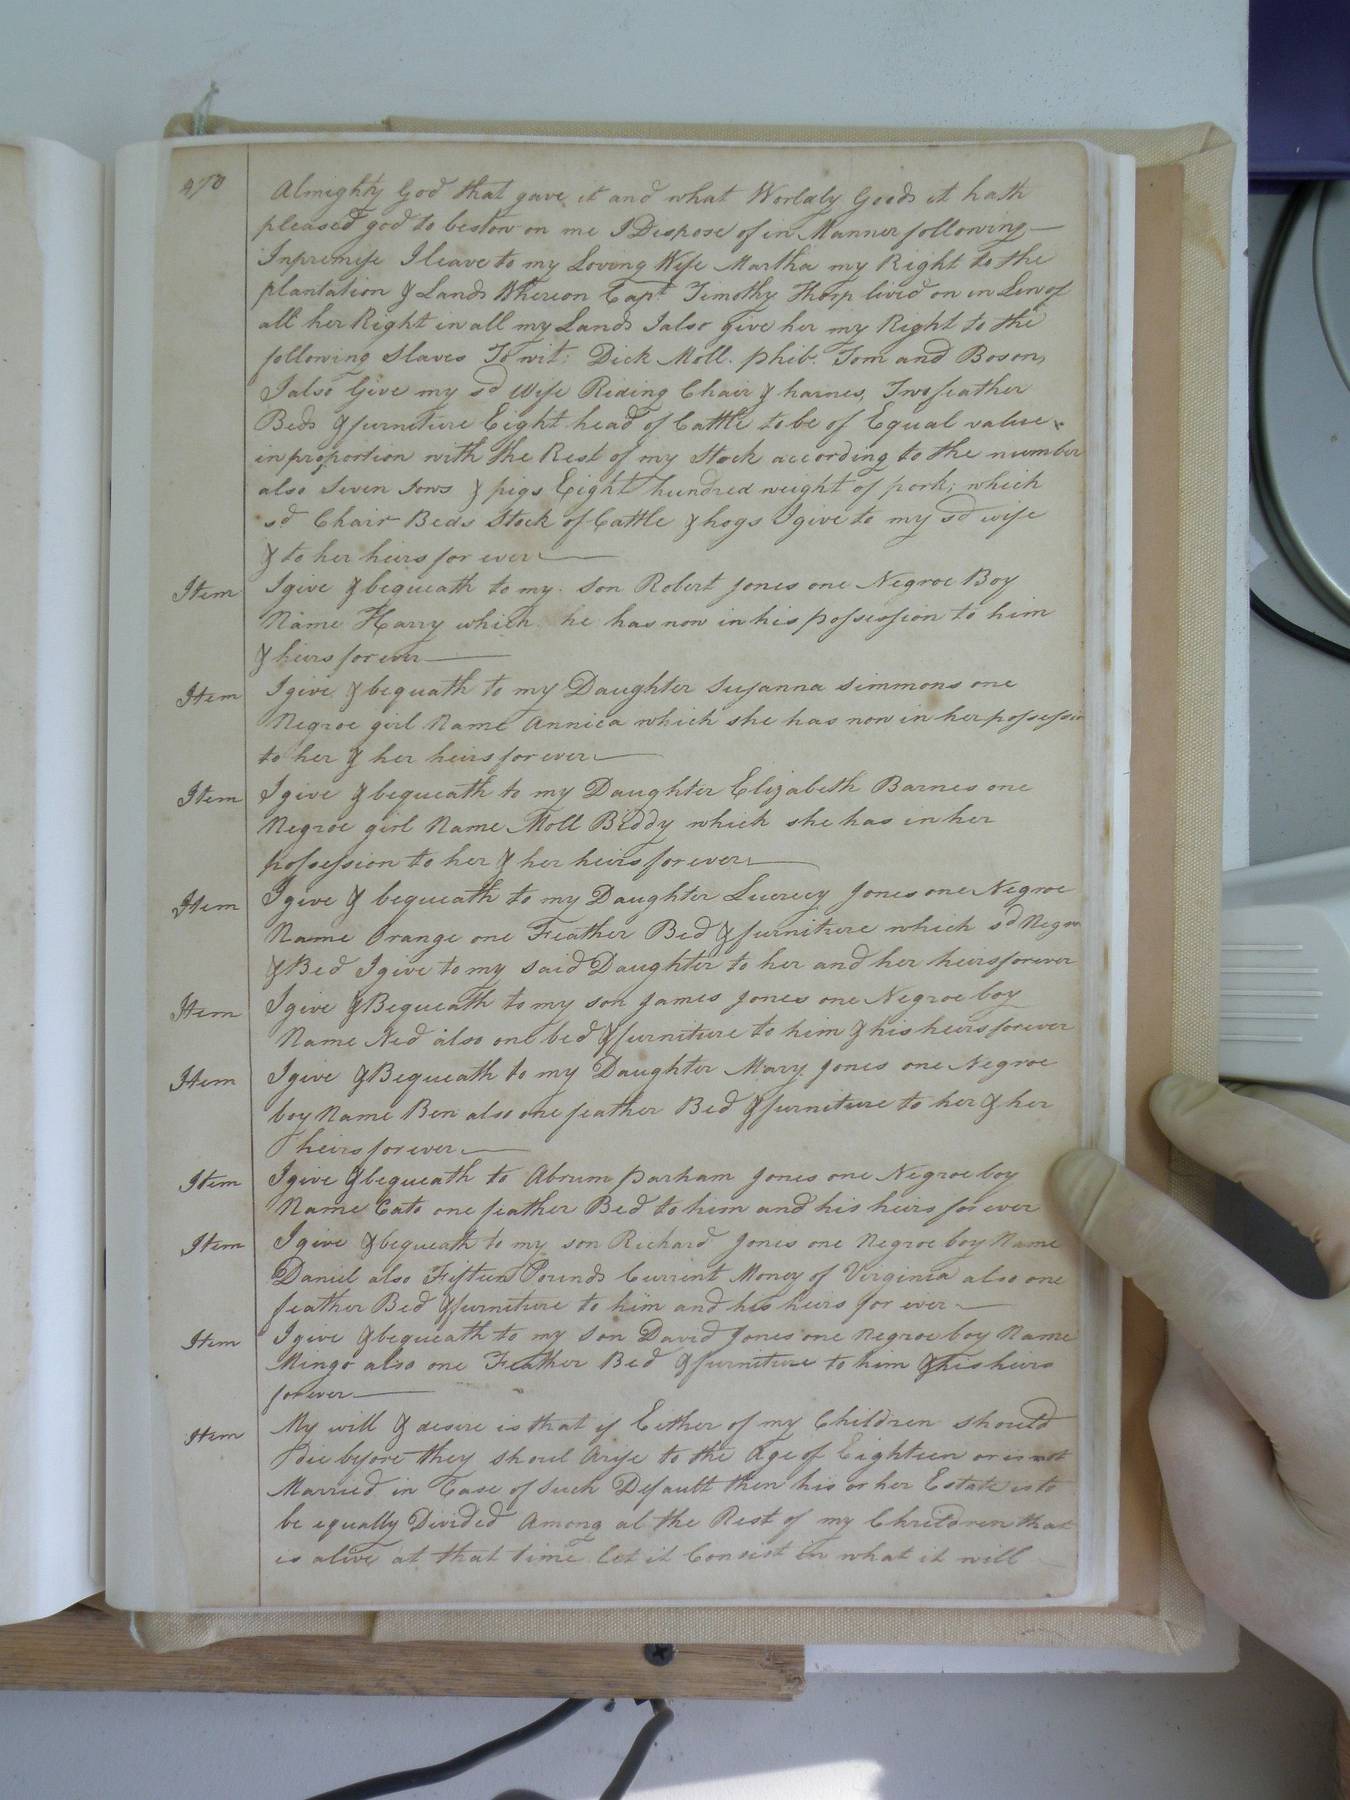 470
Almighty God that gave it and what Worldly Goods it hath
pleased god to bestow on me I Dispose of in Manner following —
Inpremise I leave to my Loving Wife Martha my Right to the
plantation & Lands Whereon Capt Timothy Thorp lived on in Lew of
all her Right in all my Lands I also give her my Right to the
following Slaves To wit: Dick Moll. Phib. Tom and Boson,
I also Give my sd Wife Riding Chair & harnes, Two feather
Beds & furniture Eight head of Cattle to be of Equal value
in proportion with the Rest of my Stock according to the number
also Seven Sows & pigs Eight hundred weight of pork; which
sd Chair Beds Stock of Cattle & hogs I give to my sd wife
& to her heirs for ever —
Item I give & bequeath to my Son Robert Jones one Negroe Boy
Name Harry which he has now in his possession to him
& heirs forever —
Item I give & bequath to my Daughter Susanna Simmons one
Negroe girl Name Annica which she has now in her possession
to her & her heirs for ever —
Item I give & bequeath to my Daughter Elizabeth Barnes one
Negroe girl Name Moll Biddy which she has in her
possession to her & her heirs forever —
Item I give & bequeath to my Daughter Lucrecy Jones one Negroe
Name Orange one Feather Bed & furniture which sd Negroe
& Bed I give to my said Daughter to her and her heirs forever
Item I give & Bequeath to my son James Jones one Negroe boy
Name Ned also one bed & furniture to him & his heirs forever
Item I give & Bequeath to my Daughter Mary Jones one Negroe
boy Name Ben also one feather Bed & furniture to her & her
heirs for ever —
Item I give & bequeath to Abrum Parham Jones one Negroe boy
Name Cato one feather Bed to him and his heirs for ever
Item I give & bequeath to my son Richard Jones one Negroe boy Name
Daniel also Fifteen Pounds Current Money of Virginia also one
feather Bed & furniture to him and his heirs for ever —
Item I give & bequeath to my Son David Jones one Negroe boy Name
Mingo also one Feather Bed & furniture to him & his heirs
forever —
Item My will & desire is that if Either of my Children should
die before they shoul Arise to the Age of Eighteen or is not
Married in Case of such Default then his or her Estate is to
be equally Divided Among al the Rest of my Children that
is alive at that time let it Consist in what it will